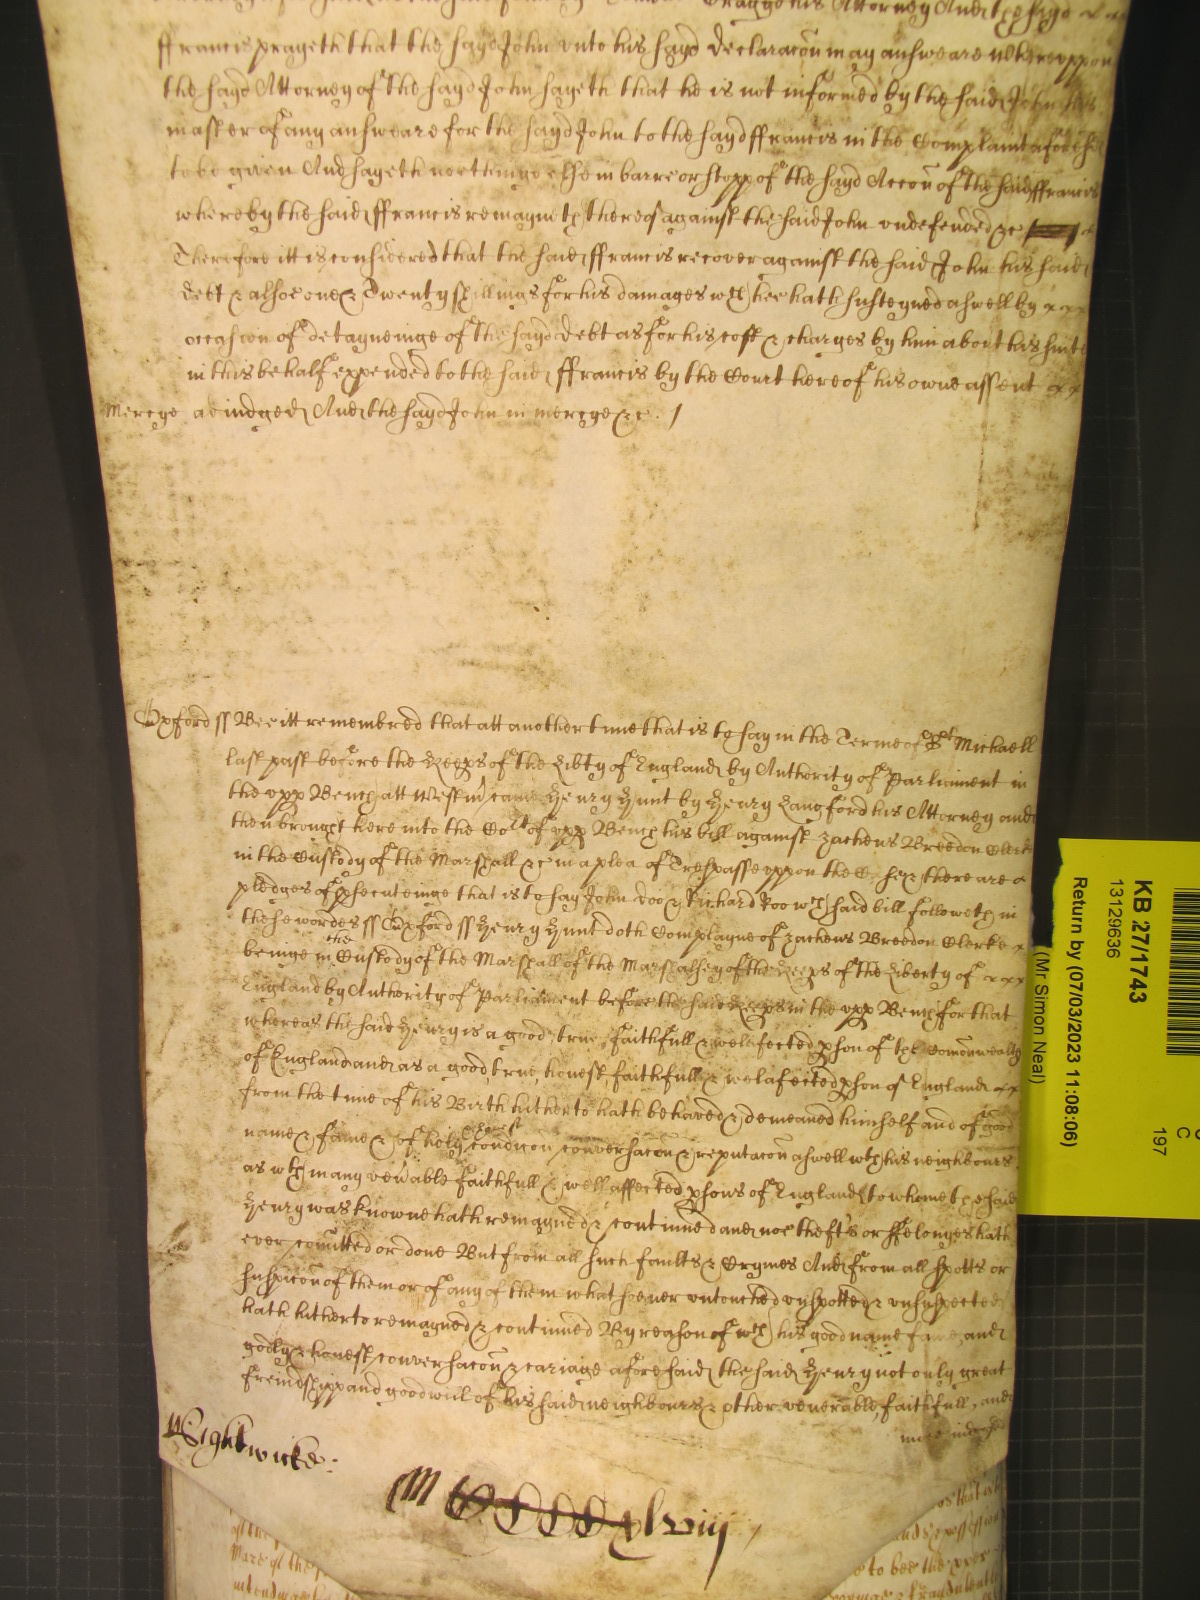 his Attorney And the sayd
ffrancis prayeth that the sayd John unto his sayd declaracon may answeare whereuppon
the sayd Attorney of the sayd John sayeth that he is not informed by the said John his
master of any answeare for the sayd John to the sayd ffrancis in the Complaint aforesaid
to be given And sayeth noethinge else in barre or stopp of the sayd Accon of the said ffrancis
whereby the said ffrancis remayneth thereof against the said John undefended &c
Therefore itt is considered that the said ffrancis recover against the said John his said
debt & alsoe one & Twenty shillings for his damages wch hee hath susteyned aswell by
occasion of detayneinge of the sayd debt as for his cost & charges by him about his suite
in this behalf expended to the said ffrancis by the Court here of his owne assent
Mercye adiudged And the sayd John in mercye &c.
Oxford ss Bee itt remembred that att another time that is to say in the Terme of St Michaell
last past before the Keeps of the Libty of England by Authority of Parliament in
the upp Bench att Westm came Henry Hunt by Henry Langford his Attorney and
then brought here into the Cot of upp Bench his bill against Zacheus Breedon Clerke
in the Custody of the Marshall &c in a plea of Trespasse uppon the Case & there are
pledges of psecuteinge that is to say John Doo & Richard Roo wch said bill followeth in
these wordes ss Oxford ss Henry Hunt doth Complayne of Zacheus Breedon Clerke
beinge in the Custody of the Marshall of the Marshalsey of the Keeps of the Liberty of
England by Authority of Parliament before the said Keeps in the upp Bench for that
whereas the said Henry is a good, true, faithfull & welafected pson of the Comonwealth
of England and as a good, true, honest faithfull & welafected pson of England
from the time of his Birth hitherto hath behaved & demeaned himself and of good
name & fame & of holy condicon conversacon & reputacon aswell wth his neighbours
as wth many venable faithfull & well affected psons of England to whome the said
Henry was knowne hath remayned & continued and noe thefts or ffelonyes hath
ever comitted or done But from all such faults & Crymes And from all spotts or
suspicon of them or of any of them whatsoever untouched unspotted & unsuspected
hath hitherto remayned & continued By reason of wch his good name fame, and
godly & honest conversacon & cariage aforesaid the said Henry not only great
freindshipp and goodwill of his said neighbours & other venerable, faithfull, and
Wightwicke:
M CCCCxlviij
KB 27/1743
13129636
Return by (07/03/2023 11:08:06)
(Mr Simon Neal)
C
197